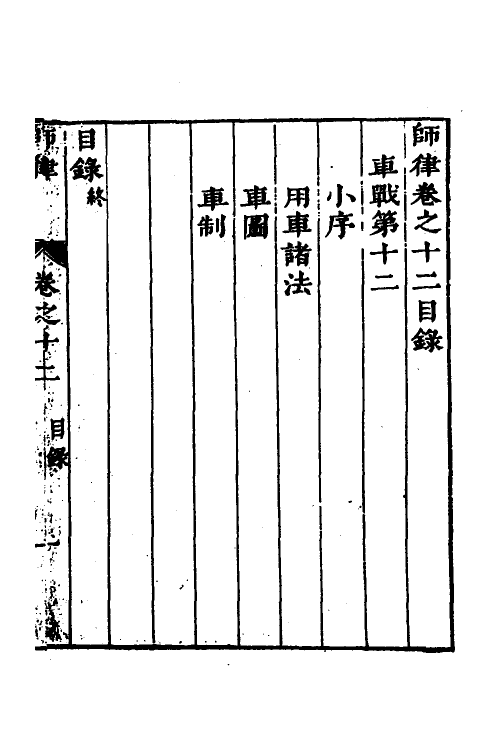 師律卷之十二目錄
車戰第十二
小序
用車諸法
車圖
車制
目錄終
師律
卷之十二
目錄
一